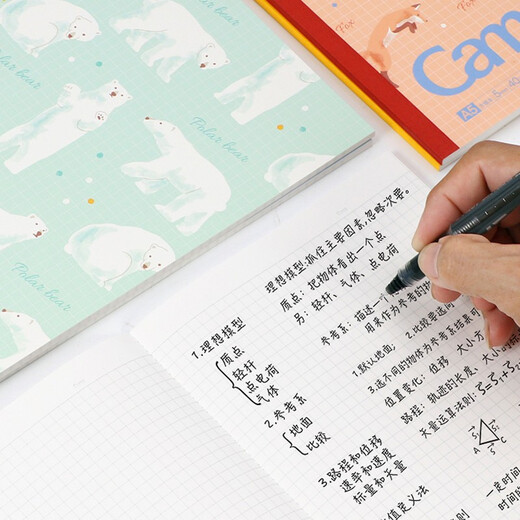 Polar bear
Polar bear
Polar bear
Polar bear
Polar bear
Fox
Fox
Cam
A5
1.理想模型
质点
轻杆
点电荷
气体
2.参考系
地面
比较
3.路程和位移
速率和速度
标量和矢量
值定义法
理想模型:抓住主要因素,忽略次要。
质点:把物体看出一个点
另:轻杆、气体、点电荷
参考系:描述一
用来作为参考的物
1.默认地面; 2.比较要选同
3.选不同的物体为参考系结果可
位置变化:位移 大小方
路程:轨迹的长度、大小的标
矢量运算法则:
A S C
一定时间
时间的
则